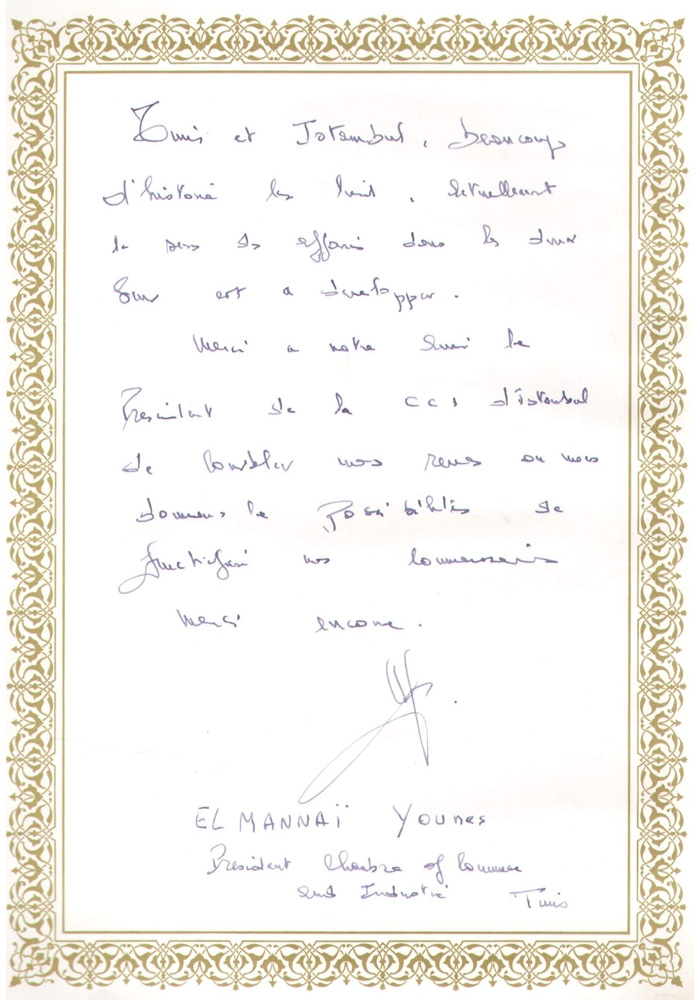 Tunis et Istambul, beaucoup
d'histoire les lient, actuellement
le sens des affaires dans les deux
est a developper.
Merci a notre ami le
President de la CCI d'istanbul
de combler nos
donner la possibilité de
fructifier nos
Merci encore.
EL MANNAÏ Younes
President Chambre of Commerce
and Industrie Tunis